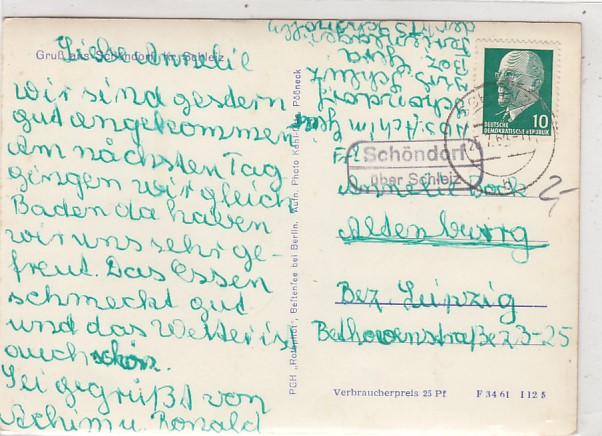 Gruß aus Schöndorf, Kr. Schleiz
Liebe Annelie
wir sind gestern
gut angekommen
Am nächsten Tag
gingen wir gleich
Baden da haben
wir uns sehr ge-
freut. Das Essen
schmeckt gut
und das Wetter ist
auch schön.
Sei gegrüßt von
Achim u. Ronald
PGH "Rotophot", Bestensee bei Berlin. Aufn. Photo Pößneck
Abs. Achim
Schöndorf
Krs. Schleiz
Bez. Gera
DEUTSCHE
DEMOKRATISCHE REPUBLIK
10
Schöndorf
über Schleiz
Annelie Bock
Altenburg
Bez. Leipzig
Bethovenstraße 23-25
2,-
Verbraucherpreis 25 Pf F 34 61 I 12 5